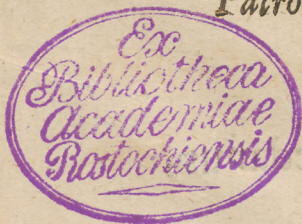 Patro
Ex
Bibliotheca
Academiae
Rostochiensis